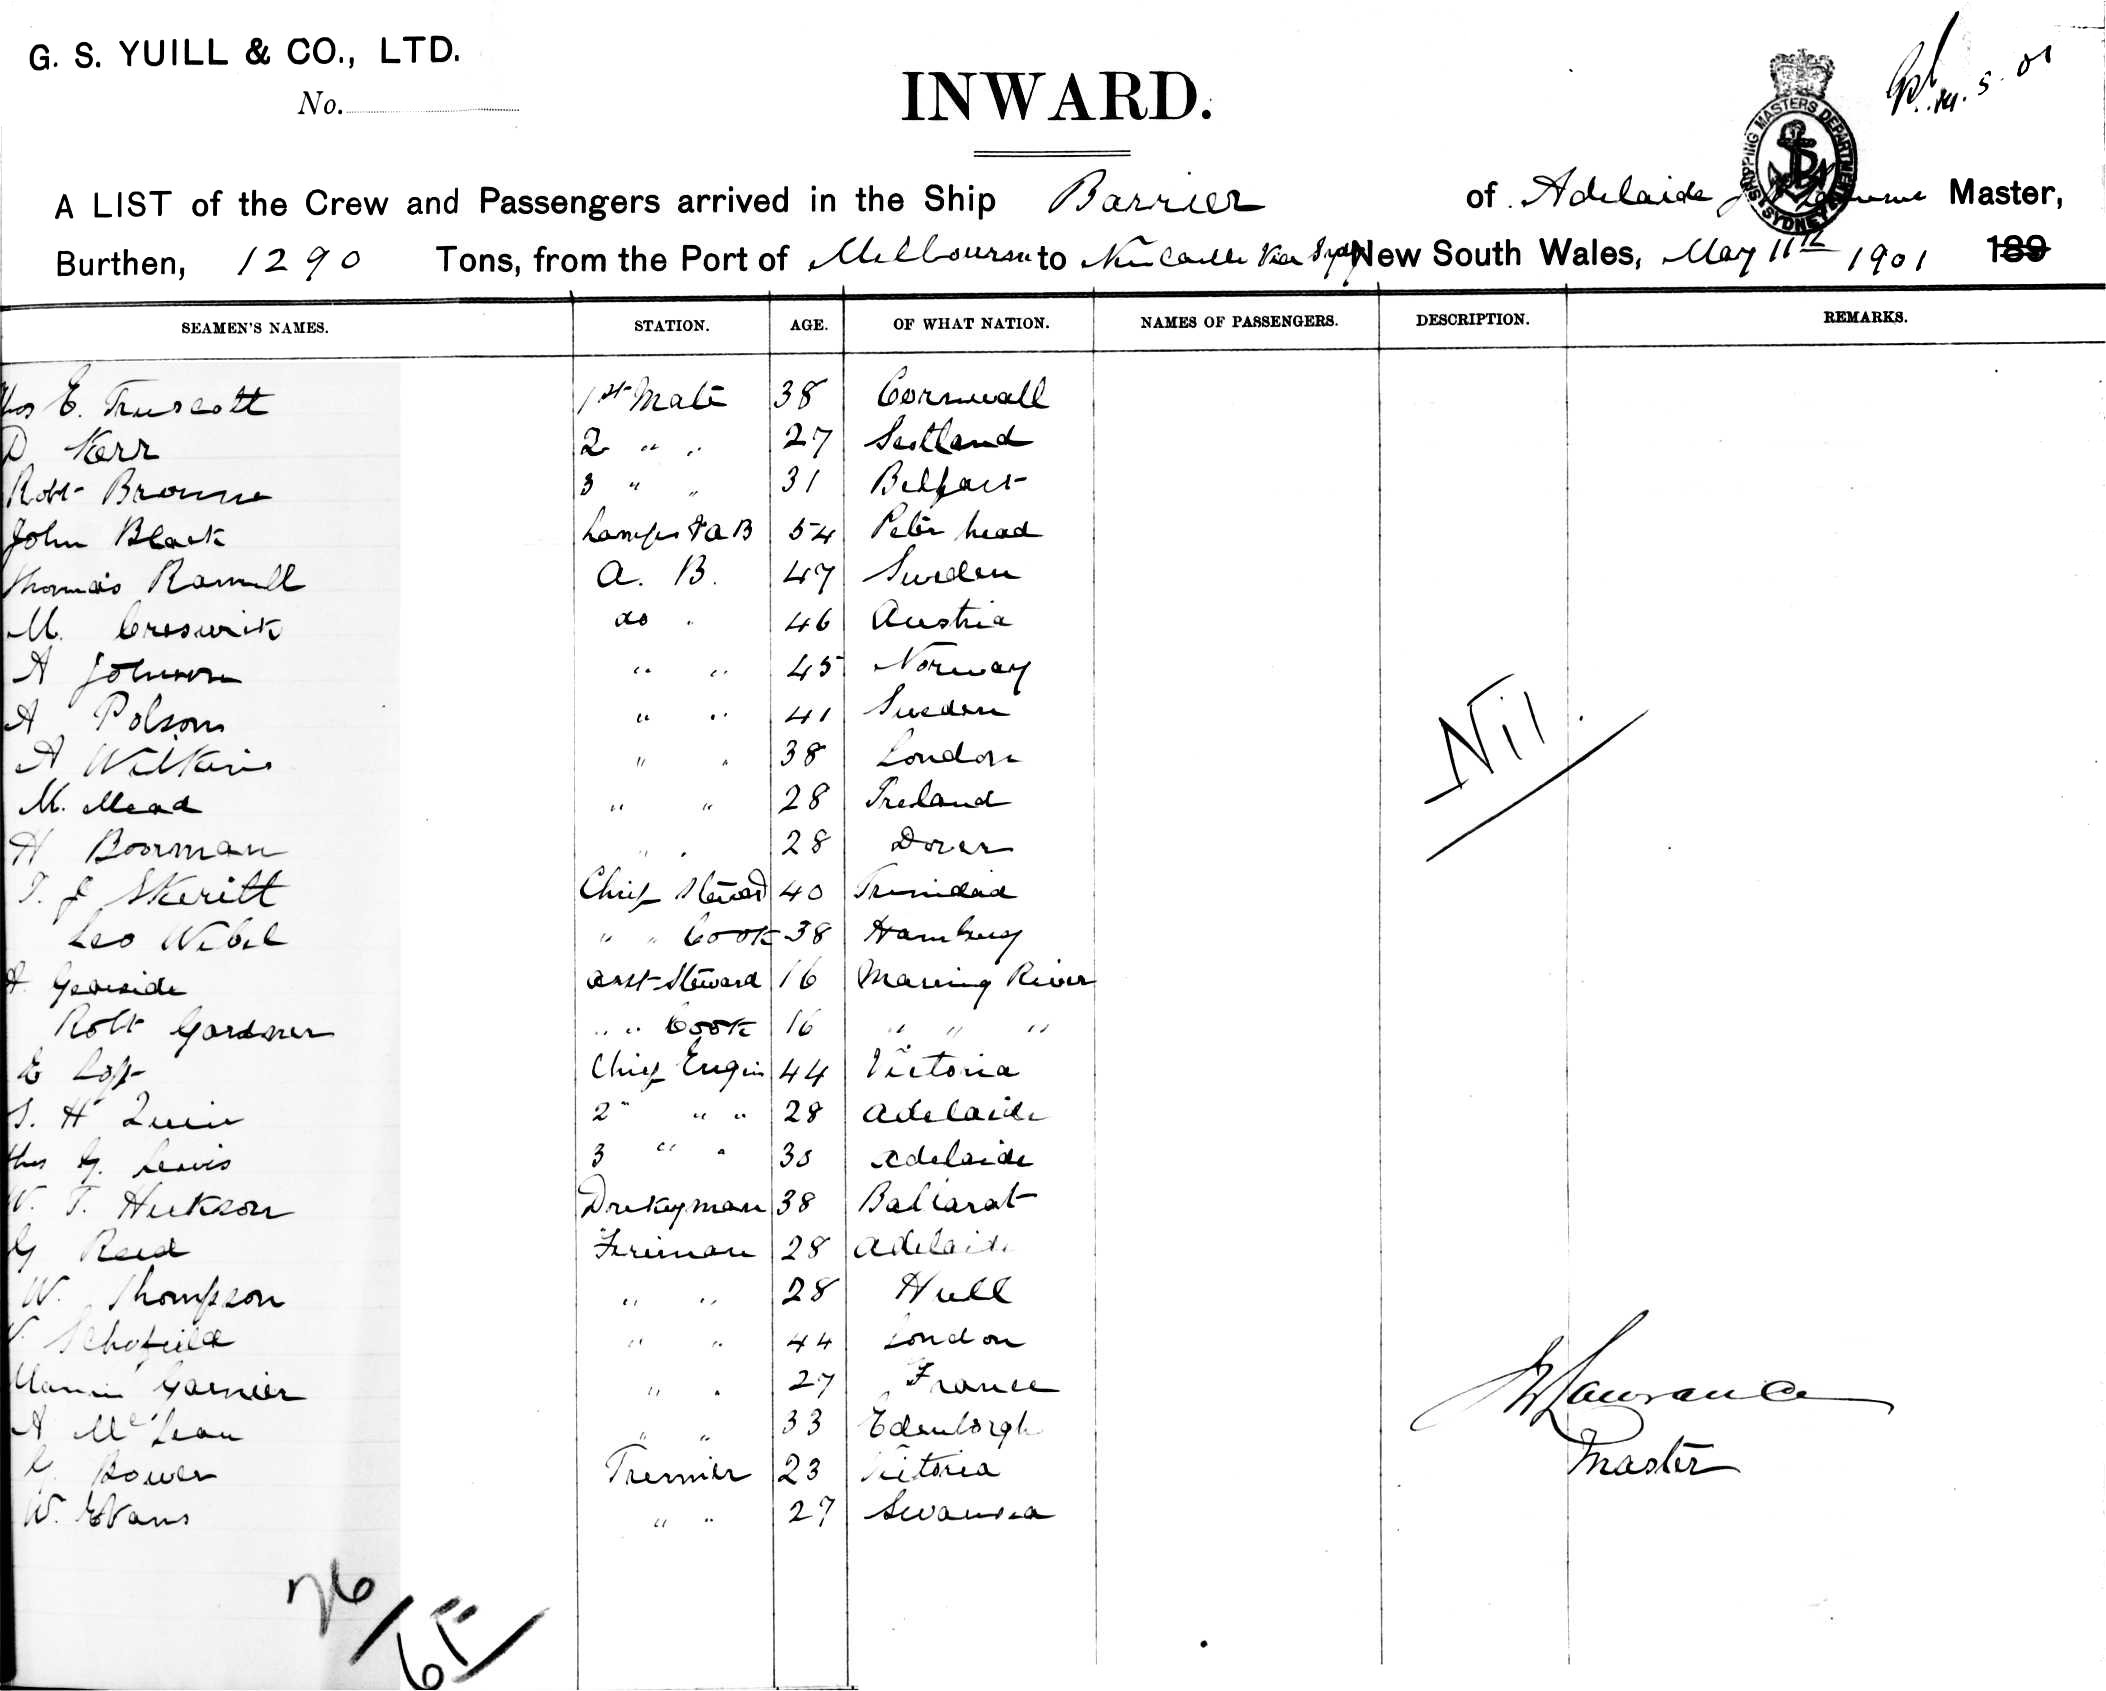 G. S. YUILL & CO., LTD.
No.
INWARD.
5. 01
SHIPPING MASTERS DEPARTMENT SYDNEY
A LIST of the Crew and Passengers arrived in the Ship Barrier of Adelaide Master,
Burthen, 1290 Tons, from the Port of Melbourne to Newcastle Via Sydney New South Wales, May 11th 1901 189
SEAMEN'S NAMES. STATION. AGE. OF WHAT NATION. NAMES OF PASSENGERS. DESCRIPTION. REMARKS.
Thos E. Truscott 1st Mate 38 Cornwall
D Kerr 2 " " 27 Scotland
Robt Browne 3 " " 31 Belfast
John Black Lamps & AB 54 Peter head
Thomas Ramell A. B. 47 Sweden
M. Creswick do 46 Austria
A Johnson " " 45 Norway
A Polson " " 41 Sweden
A Wilkins " " 38 London
M. Mead " " 28 Ireland
H Boorman " " 28 Dover
T. J Skeritt Chief Steward 40 Trinidad
Leo Wibel " " Cook 38 Hamburg
A. Gearside asst Steward 16 Maning River
Robt Gardner " " Cook 16 " " "
E Chief Engin 44 Victoria
S. H Quin 2" " " 28 Adelaide
Thos G. Lewis 3 " " 30 Adelaide
W. T. Huckson Dnkeyman 38 Ballarat
G Reed Fireman 28 Adelaide
W. Thompson " " 28 Hull
W. Schofield " " 44 London
Garnier " " 27 France
A McLean " " 33 Edenborgh
G. Bower Tremmer 23 Victoria
W. Evans " " 27 Swansea
Nil
Lawrance
Master
26/